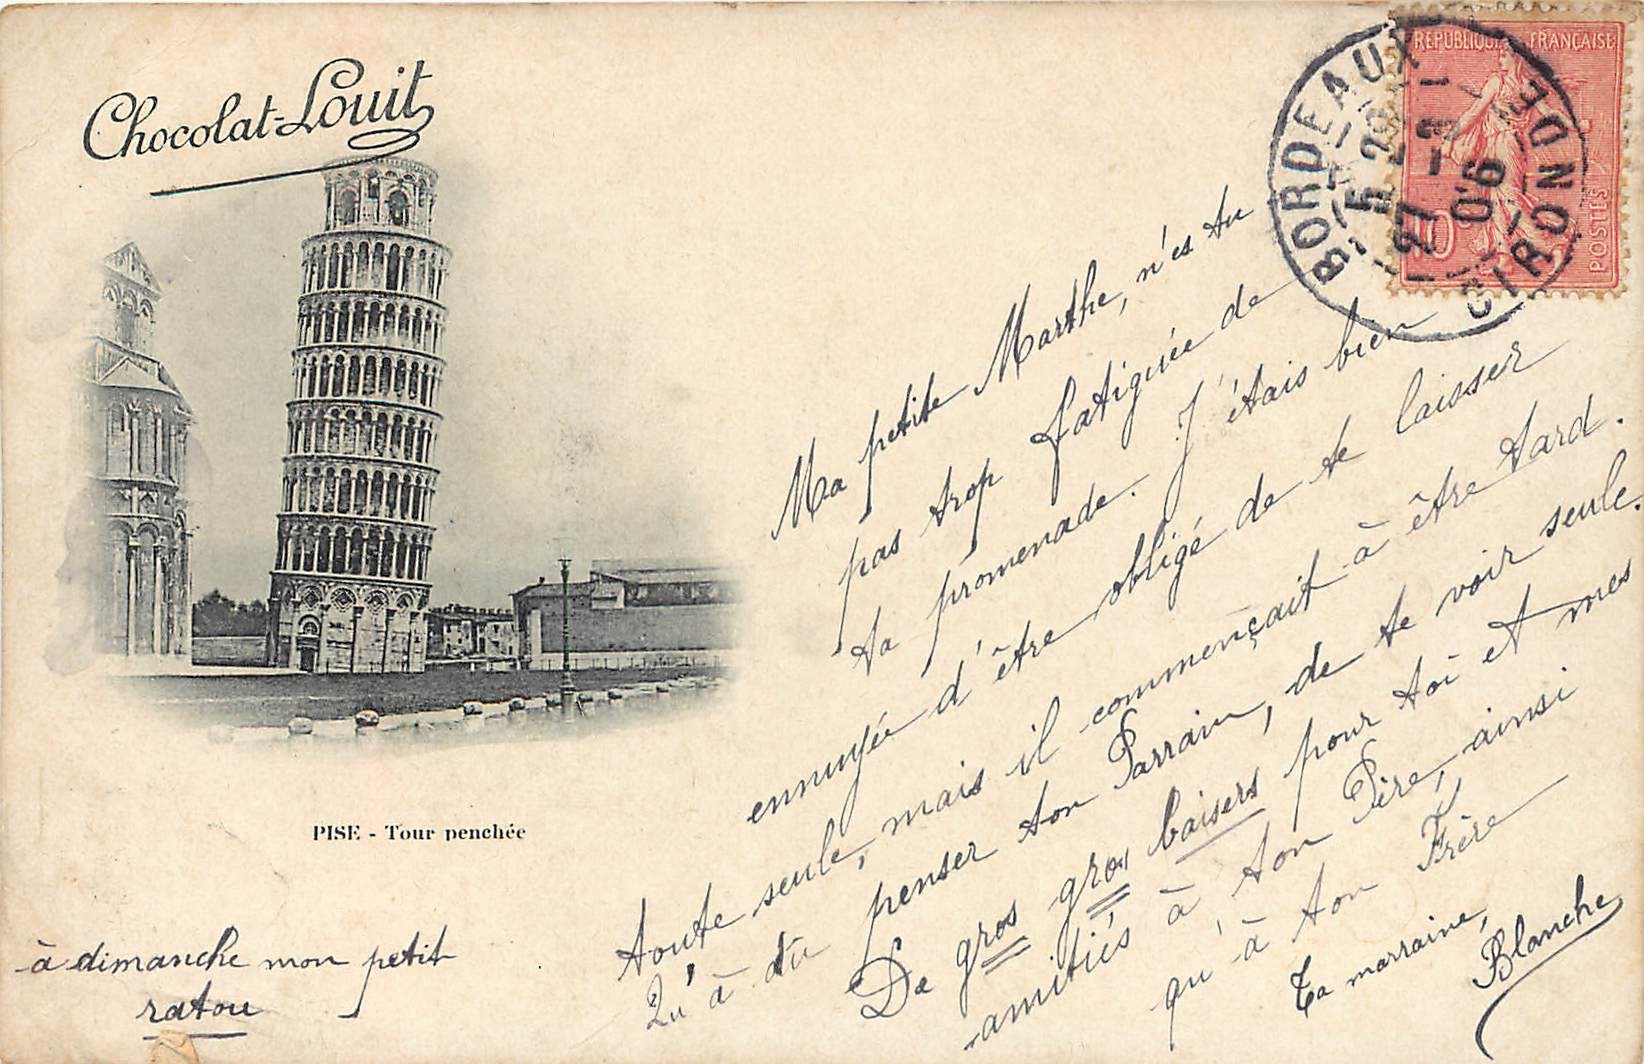 Chocolat-Louit
REPUBLIQUE FRANÇAISE
POSTES
10
BORDEAUX
GIRONDE
5 29
27 - 3
06
PISE - Tour penchée
Ma petite Marthe, n'es tu
pas trop fatiguée de
ta promenade. J'étais bien
ennuyée d'être obligé de te laisser
toute seule, mais il commençait à être tard.
Qu'à du penser ton Parrain, de te voir seule.
De gros gros baisers pour toi et mes
amitiés à ton Père, ainsi
qu'à ton Frère
Ta marraine,
Blanche
à dimanche mon petit
ratou